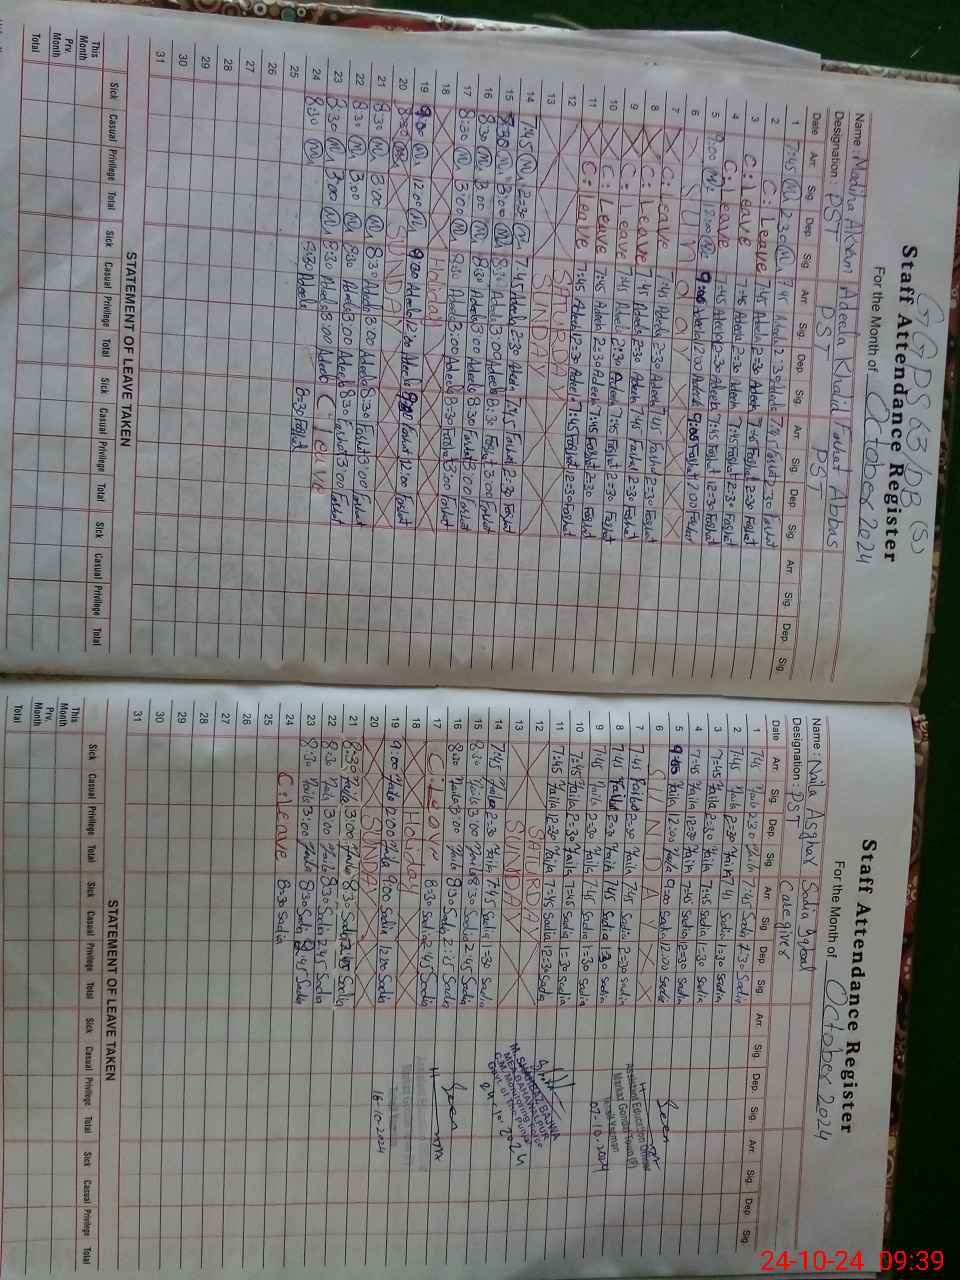 GGPS 63/DB (S)
Staff Attendance Register
For the Month of October 2024
Name: Madiha Akram Adeela Khalid Farhat Abbas
Designation: PST PST PST
Date Arr. Sig. Dep. Sig. Arr. Sig. Dep. Sig. Arr. Sig. Dep. Sig. Arr. Sig. Dep. Sig.
1 7:45 2:30 7:45 Adeela 2:30 Adeela 7:45 Farhat 2:30 Farhat
2 C: Leave 7:45 Adeela 2:30 Adeela 7:45 Farhat 2:30 Farhat
3 C: Leave 7:45 Adeela 2:30 Adeela 7:45 Farhat 2:30 Farhat
4 C: Leave 7:45 Adeela 12:30 Adeela 7:45 Farhat 12:30 Farhat
5 9:00 12:00 9:00 Adeela 12:00 Adeela 9:00 Farhat 12:00 Farhat
6 SUNDAY
7 C: Leave 7:45 Adeela 2:30 Adeela 7:45 Farhat 2:30 Farhat
8 C: Leave 7:45 Adeela 2:30 Adeela 7:45 Farhat 2:30 Farhat
9 C: Leave 7:45 Adeela 2:30 Adeela 7:45 Farhat 2:30 Farhat
10 C: Leave 7:45 Adeela 2:30 Adeela 7:45 Farhat 2:30 Farhat
11 C: Leave 7:45 Adeela 12:30 Adeela 7:45 Farhat 12:30 Farhat
12 SATURDAY
13 SUNDAY
14 7:45 2:30 7:45 Adeela 2:30 Adeela 7:45 Farhat 2:30 Farhat
15 8:30 3:00 8:30 Adeela 3:00 Adeela 8:30 Farhat 3:00 Farhat
16 8:30 3:00 8:30 Adeela 3:00 Adeela 8:30 Farhat 3:00 Farhat
17 8:30 3:00 8:30 Adeela 3:00 Adeela 8:30 Farhat 3:00 Farhat
18 Holiday
19 9:00 12:00 9:00 Adeela 12:00 Adeela 9:00 Farhat 12:00 Farhat
20 8:30 SUNDAY
21 8:30 3:00 8:30 Adeela 3:00 Adeela 8:30 Farhat 3:00 Farhat
22 8:30 3:00 8:30 Adeela 3:00 Adeela 8:30 Farhat 3:00 Farhat
23 8:30 3:00 8:30 Adeela 3:00 Adeela C: Leave
24 8:30 8:30 Adeela 8:30 Farhat
25
26
27
28
29
30
31
STATEMENT OF LEAVE TAKEN
Sick Casual Privilege Total Sick Casual Privilege Total Sick Casual Privilege Total Sick Casual Privilege Total
This Month
Prv. Month
Total
Staff Attendance Register
For the Month of October 2024
Name: Naila Asghar Sadia Iqbal
Designation: PST Caregiver
Date Arr. Sig. Dep. Sig. Arr. Sig. Dep. Sig. Arr. Sig. Dep. Sig. Arr. Sig. Dep. Sig.
1 7:45 Naila 2:30 Naila 7:45 Sadia 1:30 Sadia
2 7:45 Naila 2:30 Naila 7:45 Sadia 1:30 Sadia
3 7:45 Naila 2:30 Naila 7:45 Sadia 1:30 Sadia
4 7:45 Naila 12:30 Naila 7:45 Sadia 12:30 Sadia
5 9:00 Naila 12:00 Naila 9:00 Sadia 12:00 Sadia
6 SUNDAY
7 7:45 Naila 2:30 Naila 7:45 Sadia 2:30 Sadia
8 7:45 Naila 2:30 Naila 7:45 Sadia 1:30 Sadia
9 7:45 Naila 2:30 Naila 7:45 Sadia 1:30 Sadia
10 7:45 Naila 2:30 Naila 7:45 Sadia 1:30 Sadia
11 7:45 Naila 12:30 Naila 7:45 Sadia 12:30 Sadia
12 SATURDAY
13 SUNDAY
14 7:45 Naila 2:30 Naila 7:45 Sadia 1:30 Sadia
15 8:30 Naila 3:00 Naila 8:30 Sadia 2:45 Sadia
16 8:30 Naila 3:00 Naila 8:30 Sadia 2:15 Sadia
17 C: Leave 8:30 Sadia 2:45 Sadia
18 Holiday
19 9:00 Naila 12:00 Naila 9:00 Sadia 12:00 Sadia
20 SUNDAY
21 8:30 Naila 3:00 Naila 8:30 Sadia 2:45 Sadia
22 8:30 Naila 3:00 Naila 8:30 Sadia 2:45 Sadia
23 8:30 Naila 3:00 Naila 8:30 Sadia 2:45 Sadia
24 C: Leave 8:30 Sadia
25
26
27
28
29
30
31
Seen
Assistant Education Officer
07-10-2024
M. SHAHBAZ BAJWA
MEA BAHAWALPUR
Govt. of the Punjab
24-10-2024
Seen
16-10-2024
STATEMENT OF LEAVE TAKEN
Sick Casual Privilege Total Sick Casual Privilege Total Sick Casual Privilege Total Sick Casual Privilege Total
This Month
Prv. Month
Total
24-10-24 09:39